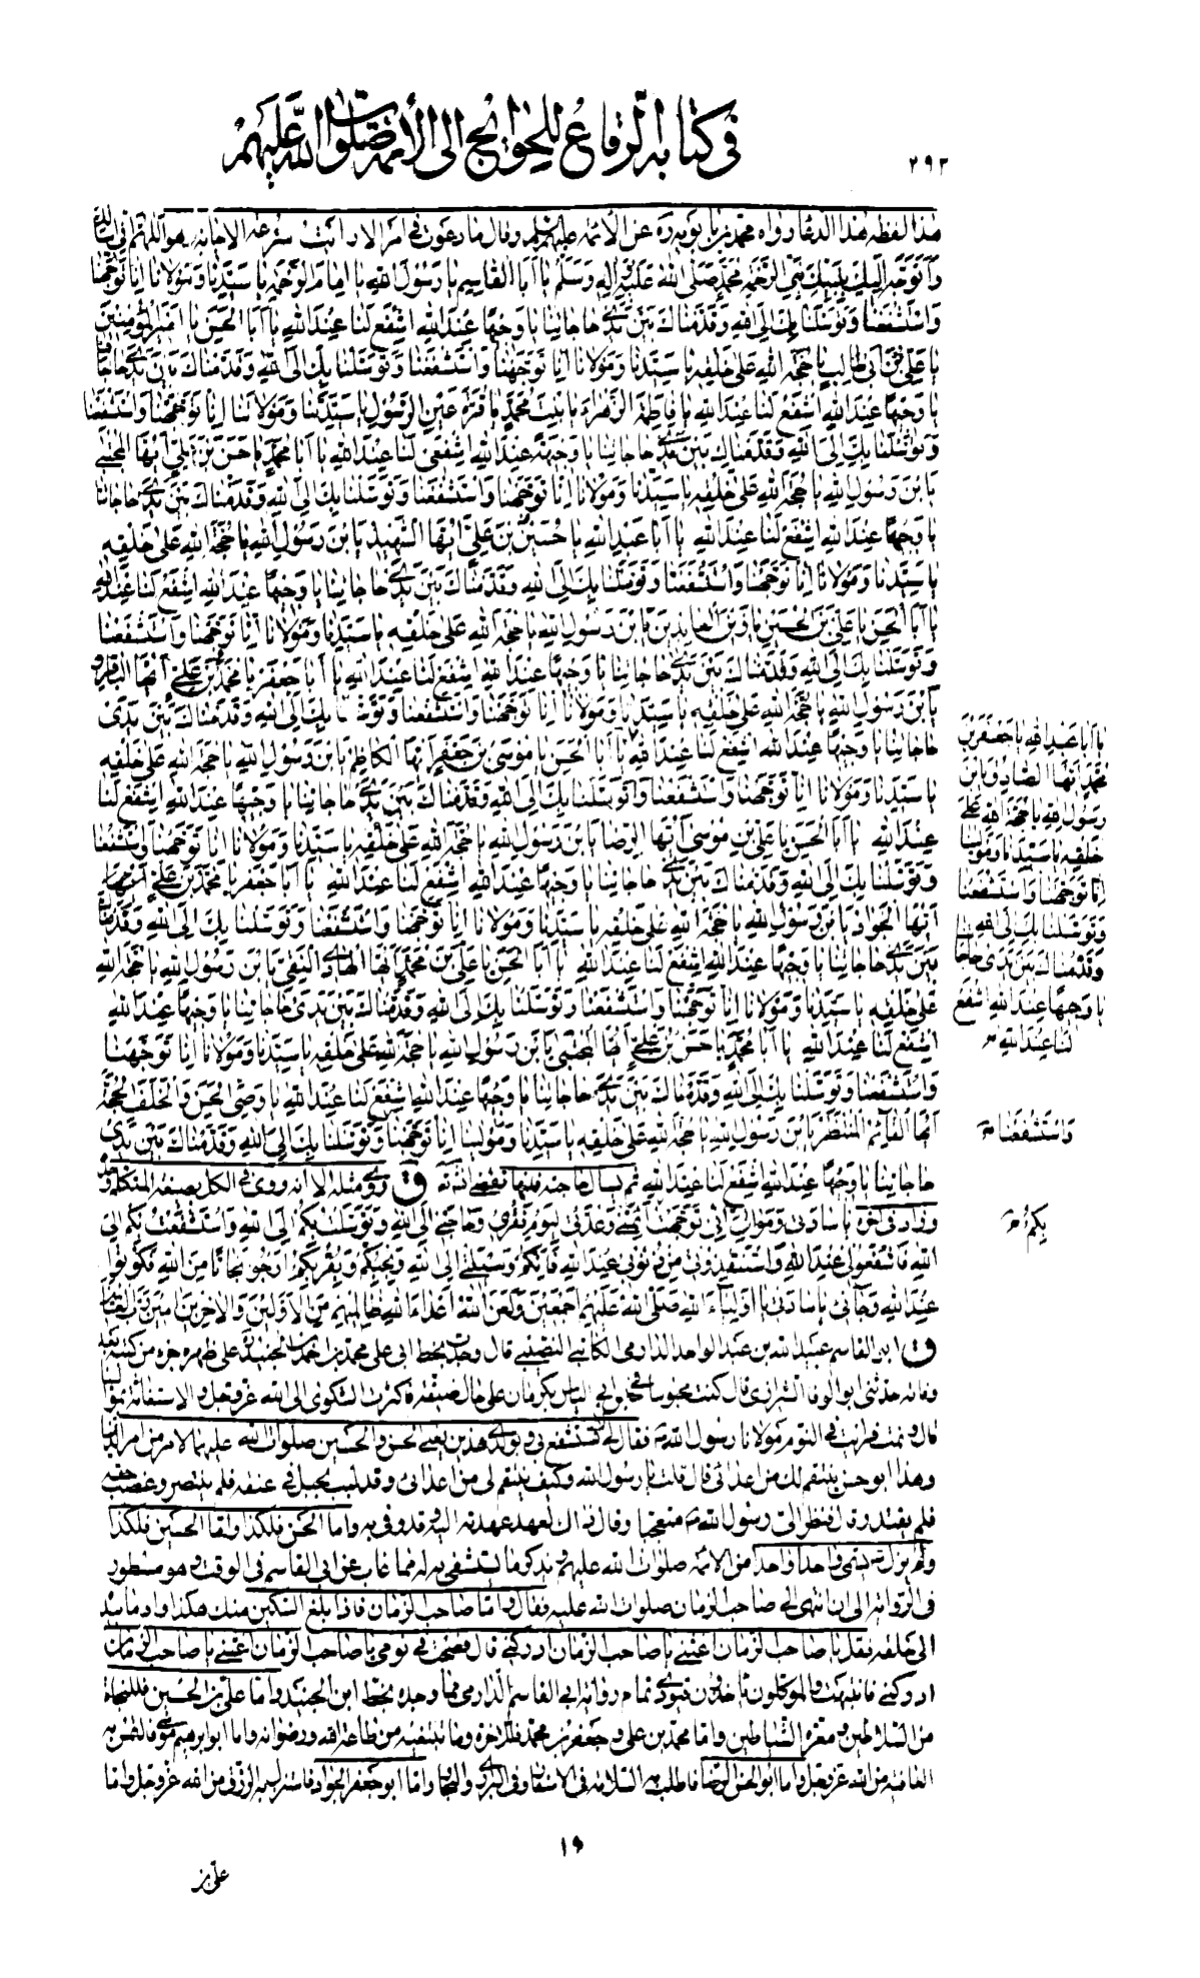 في كتابة الرقاع للحوائج الى الأئمة صلوات الله عليهم
٢٩٢
هذا لفظه هذا الدعاء رواه محمد بن بابويه ره عن الأئمة عليهم السلم وقال ما دعوت في امر الا رايت سرعة الاجابة هو اللهم اني اسألك
وَأَتَوَجَّهُ إِلَيْكَ بِنَبِيِّكَ نَبِيِّ الرَّحْمَةِ مُحَمَّدٍ صَلَّى اللهُ عَلَيْهِ وَآلِهِ وَسَلَّمَ يا أَبَا الْقَاسِمِ يا رَسُولَ اللهِ يا إِمَامَ الرَّحْمَةِ يا سَيِّدَنا وَمَوْلانا إِنّا تَوَجَّهْنا
وَاسْتَشْفَعْنا وَتَوَسَّلْنا بِكَ إِلَى اللهِ وَقَدَّمْناكَ بَيْنَ يَدَيْ حاجاتِنا يا وَجِيهًا عِنْدَ اللهِ اشْفَعْ لَنا عِنْدَ اللهِ يا أَبَا الْحَسَنِ يا أَمِيرَ الْمُؤْمِنِينَ
يا عَلِيَّ بْنَ أَبِي طالِبٍ يا حُجَّةَ اللهِ عَلى خَلْقِهِ يا سَيِّدَنا وَمَوْلانا إِنّا تَوَجَّهْنا وَاسْتَشْفَعْنا وَتَوَسَّلْنا بِكَ إِلَى اللهِ وَقَدَّمْناكَ بَيْنَ يَدَيْ حاجاتِنا
يا وَجِيهًا عِنْدَ اللهِ اشْفَعْ لَنا عِنْدَ اللهِ يا فاطِمَةَ الزَّهْراءَ يا بِنْتَ مُحَمَّدٍ يا قُرَّةَ عَيْنِ الرَّسُولِ يا سَيِّدَتَنا وَمَوْلاتَنا إِنّا تَوَجَّهْنا وَاسْتَشْفَعْنا
وَتَوَسَّلْنا بِكِ إِلَى اللهِ وَقَدَّمْناكِ بَيْنَ يَدَيْ حاجاتِنا يا وَجِيهَةً عِنْدَ اللهِ اشْفَعِي لَنا عِنْدَ اللهِ يا أَبا مُحَمَّدٍ يا حَسَنَ بْنَ عَلِيٍّ أَيُّهَا الْمُجْتَبى
يَا بْنَ رَسُولِ اللهِ يا حُجَّةَ اللهِ عَلى خَلْقِهِ يا سَيِّدَنا وَمَوْلانا إِنّا تَوَجَّهْنا وَاسْتَشْفَعْنا وَتَوَسَّلْنا بِكَ إِلَى اللهِ وَقَدَّمْناكَ بَيْنَ يَدَيْ حاجاتِنا
يا وَجِيهًا عِنْدَ اللهِ اشْفَعْ لَنا عِنْدَ اللهِ يا أَبا عَبْدِ اللهِ يا حُسَيْنَ بْنَ عَلِيٍّ أَيُّهَا الشَّهِيدُ يَا بْنَ رَسُولِ اللهِ يا حُجَّةَ اللهِ عَلى خَلْقِهِ
يا سَيِّدَنا وَمَوْلانا إِنّا تَوَجَّهْنا وَاسْتَشْفَعْنا وَتَوَسَّلْنا بِكَ إِلَى اللهِ وَقَدَّمْناكَ بَيْنَ يَدَيْ حاجاتِنا يا وَجِيهًا عِنْدَ اللهِ اشْفَعْ لَنا عِنْدَ اللهِ
يا أَبَا الْحَسَنِ يا عَلِيَّ بْنَ الْحُسَيْنِ يا زَيْنَ الْعابِدِينَ يَا بْنَ رَسُولِ اللهِ يا حُجَّةَ اللهِ عَلى خَلْقِهِ يا سَيِّدَنا وَمَوْلانا إِنّا تَوَجَّهْنا وَاسْتَشْفَعْنا
وَتَوَسَّلْنا بِكَ إِلَى اللهِ وَقَدَّمْناكَ بَيْنَ يَدَيْ حاجاتِنا يا وَجِيهًا عِنْدَ اللهِ اشْفَعْ لَنا عِنْدَ اللهِ يا أَبا جَعْفَرٍ يا مُحَمَّدَ بْنَ عَلِيٍّ أَيُّهَا الْباقِرُ
يَا بْنَ رَسُولِ اللهِ يا حُجَّةَ اللهِ عَلى خَلْقِهِ يا سَيِّدَنا وَمَوْلانا إِنّا تَوَجَّهْنا وَاسْتَشْفَعْنا وَتَوَسَّلْنا بِكَ إِلَى اللهِ وَقَدَّمْناكَ بَيْنَ يَدَيْ
حاجاتِنا يا وَجِيهًا عِنْدَ اللهِ اشْفَعْ لَنا عِنْدَ اللهِ يا أَبَا الْحَسَنِ يا مُوسَى بْنَ جَعْفَرٍ أَيُّهَا الْكاظِمُ يَا بْنَ رَسُولِ اللهِ يا حُجَّةَ اللهِ عَلى خَلْقِهِ
يا سَيِّدَنا وَمَوْلانا إِنّا تَوَجَّهْنا وَاسْتَشْفَعْنا وَتَوَسَّلْنا بِكَ إِلَى اللهِ وَقَدَّمْناكَ بَيْنَ يَدَيْ حاجاتِنا يا وَجِيهًا عِنْدَ اللهِ اشْفَعْ لَنا
عِنْدَ اللهِ يا أَبَا الْحَسَنِ يا عَلِيَّ بْنَ مُوسى أَيُّهَا الرِّضا يَا بْنَ رَسُولِ اللهِ يا حُجَّةَ اللهِ عَلى خَلْقِهِ يا سَيِّدَنا وَمَوْلانا إِنّا تَوَجَّهْنا وَاسْتَشْفَعْنا
وَتَوَسَّلْنا بِكَ إِلَى اللهِ وَقَدَّمْناكَ بَيْنَ يَدَيْ حاجاتِنا يا وَجِيهًا عِنْدَ اللهِ اشْفَعْ لَنا عِنْدَ اللهِ يا أَبا جَعْفَرٍ يا مُحَمَّدَ بْنَ عَلِيٍّ
أَيُّهَا الْجَوادُ يَا بْنَ رَسُولِ اللهِ يا حُجَّةَ اللهِ عَلى خَلْقِهِ يا سَيِّدَنا وَمَوْلانا إِنّا تَوَجَّهْنا وَاسْتَشْفَعْنا وَتَوَسَّلْنا بِكَ إِلَى اللهِ وَقَدَّمْناكَ
بَيْنَ يَدَيْ حاجاتِنا يا وَجِيهًا عِنْدَ اللهِ اشْفَعْ لَنا عِنْدَ اللهِ يا أَبَا الْحَسَنِ يا عَلِيَّ بْنَ مُحَمَّدٍ أَيُّهَا الْهادِي النَّقِيُّ يَا بْنَ رَسُولِ اللهِ يا حُجَّةَ اللهِ
عَلى خَلْقِهِ يا سَيِّدَنا وَمَوْلانا إِنّا تَوَجَّهْنا وَاسْتَشْفَعْنا وَتَوَسَّلْنا بِكَ إِلَى اللهِ وَقَدَّمْناكَ بَيْنَ يَدَيْ حاجاتِنا يا وَجِيهًا عِنْدَ اللهِ
اشْفَعْ لَنا عِنْدَ اللهِ يا أَبا مُحَمَّدٍ يا حَسَنَ بْنَ عَلِيٍّ أَيُّهَا الْمُجْتَبى يَا بْنَ رَسُولِ اللهِ يا حُجَّةَ اللهِ عَلى خَلْقِهِ يا سَيِّدَنا وَمَوْلانا إِنّا تَوَجَّهْنا
وَاسْتَشْفَعْنا وَتَوَسَّلْنا بِكَ إِلَى اللهِ وَقَدَّمْناكَ بَيْنَ يَدَيْ حاجاتِنا يا وَجِيهًا عِنْدَ اللهِ اشْفَعْ لَنا عِنْدَ اللهِ يا وَصِيَّ الْحَسَنِ وَالْخَلَفَ الْحُجَّةَ
أَيُّهَا الْقائِمُ الْمُنْتَظَرُ يَا بْنَ رَسُولِ اللهِ يا حُجَّةَ اللهِ عَلى خَلْقِهِ يا سَيِّدَنا وَمَوْلانا إِنّا تَوَجَّهْنا وَتَوَسَّلْنا بِكَ إِلَى اللهِ وَقَدَّمْناكَ بَيْنَ يَدَيْ
حاجاتِنا يا وَجِيهًا عِنْدَ اللهِ اشْفَعْ لَنا عِنْدَ اللهِ ثم يسأل حاجته فانها تقضى انش تع ق روى مثله الا انه روى في الكل بصيغة المتكلم وحده
وزاد في آخره يا سادَتِي وَمَوالِيَّ إِنِّي تَوَجَّهْتُ أَئِمَّتِي وَعُدَّتِي لِيَوْمِ فَقْرِي وَحاجَتِي إِلَى اللهِ وَتَوَسَّلْتُ بِكُمْ إِلَى اللهِ وَاسْتَشْفَعْتُ بِكُمْ إِلَى
اللهِ فَاشْفَعُوا لِي عِنْدَ اللهِ وَاسْتَنْقِذُونِي مِنْ ذُنُوبِي عِنْدَ اللهِ فَإِنَّكُمْ وَسِيلَتِي إِلَى اللهِ وَبِحُبِّكُمْ وَبِقُرْبِكُمْ أَرْجُو نَجاةً مِنَ اللهِ فَكُونُوا
عِنْدَ اللهِ رَجائِي يا سادَتِي يا أَوْلِياءَ اللهِ صَلَّى اللهُ عَلَيْهِمْ أَجْمَعِينَ وَلَعَنَ اللهُ أَعْداءَ اللهِ ظالِمِيهِمْ مِنَ الْأَوَّلِينَ وَالْآخِرِينَ آمِينَ رَبَّ الْعالَمِينَ
ق ابو القاسم عبيد الله بن عبد الواحد الدارمي الكاتب النصيبي قال وجدت بخط ابي علي محمد بن احمد بن الجنيد ره على ظهر جزء من كتبه بعد
وفاته حدثني ابو الوفا الشيرازي قال كنت محبوسا في حبس ابي الياس بكرمان على حال ضيقة فاكثرت الشكوى الى الله عز وجل والاستغاثة
قال ونمت فرايت في النوم مولانا رسول الله ص فقال لي لا تستشفع بي وبولدي هذين يعني الحسن والحسين صلوات الله عليهما لامر من امر الدنيا
وهذا ابو حسن ينتقم لك من اعدائك قال قلت يا رسول الله وكيف ينتقم لي من اعدائي وقد لبب بحبل في عنقه فلم ينتصر وغصب حقه
فلم يقتدر قال فنظر الي رسول الله ص متعجبا وقال ذاك لعهد عهدته اليه وقد وفى به واما الحسن فلكذا واما الحسين فلكذا
ولم يزل يسمي واحدا واحدا من الائمة صلوات الله عليهم ويذكر ما يستشفى به له مما غاب عن ابي القاسم في الوقت وهو مسطور
في الرواية الى ان انتهى الى صاحب الزمان صلوات الله عليه فقال واما صاحب الزمان فاذا بلغ السكين منك هكذا واومأ بيده
الى حلقه فقل يا صاحب الزمان اغثني يا صاحب الزمان ادركني قال فصحت في نومي يا صاحب الزمان اغثني يا صاحب الزمان
ادركني فانتبهت والموكلون ياخذون قيودي تمام رواية ابي القاسم الدارمي مما وجده بخط ابن الجنيد واما علي بن الحسين فللنجاة
من السلاطين ومعرة الشياطين واما محمد بن علي وجعفر بن محمد فللآخرة وما تبتغيه من طاعة الله ورضوانه واما ابو ابراهيم موسى فالتمس به
العافية من الله عز وجل واما ابو الحسن الرضا فاطلب به السلامة في الاسفار وفي البراري والبحار واما ابو جعفر الجواد فاستنزل به الرزق من الله عز وجل واما
يا أَبا عَبْدِ اللهِ يا جَعْفَرَ بْنَ
مُحَمَّدٍ أَيُّهَا الصّادِقُ يَا بْنَ
رَسُولِ اللهِ يا حُجَّةَ اللهِ عَلى
خَلْقِهِ يا سَيِّدَنا وَمَوْلانا
إِنّا تَوَجَّهْنا وَاسْتَشْفَعْنا
وَتَوَسَّلْنا بِكَ إِلَى اللهِ
وَقَدَّمْناكَ بَيْنَ يَدَيْ حاجاتِنا
يا وَجِيهًا عِنْدَ اللهِ اشْفَعْ
لَنا عِنْدَ اللهِ
وَاسْتَشْفَعْنا
بِكُمْ
١٩
علي بن